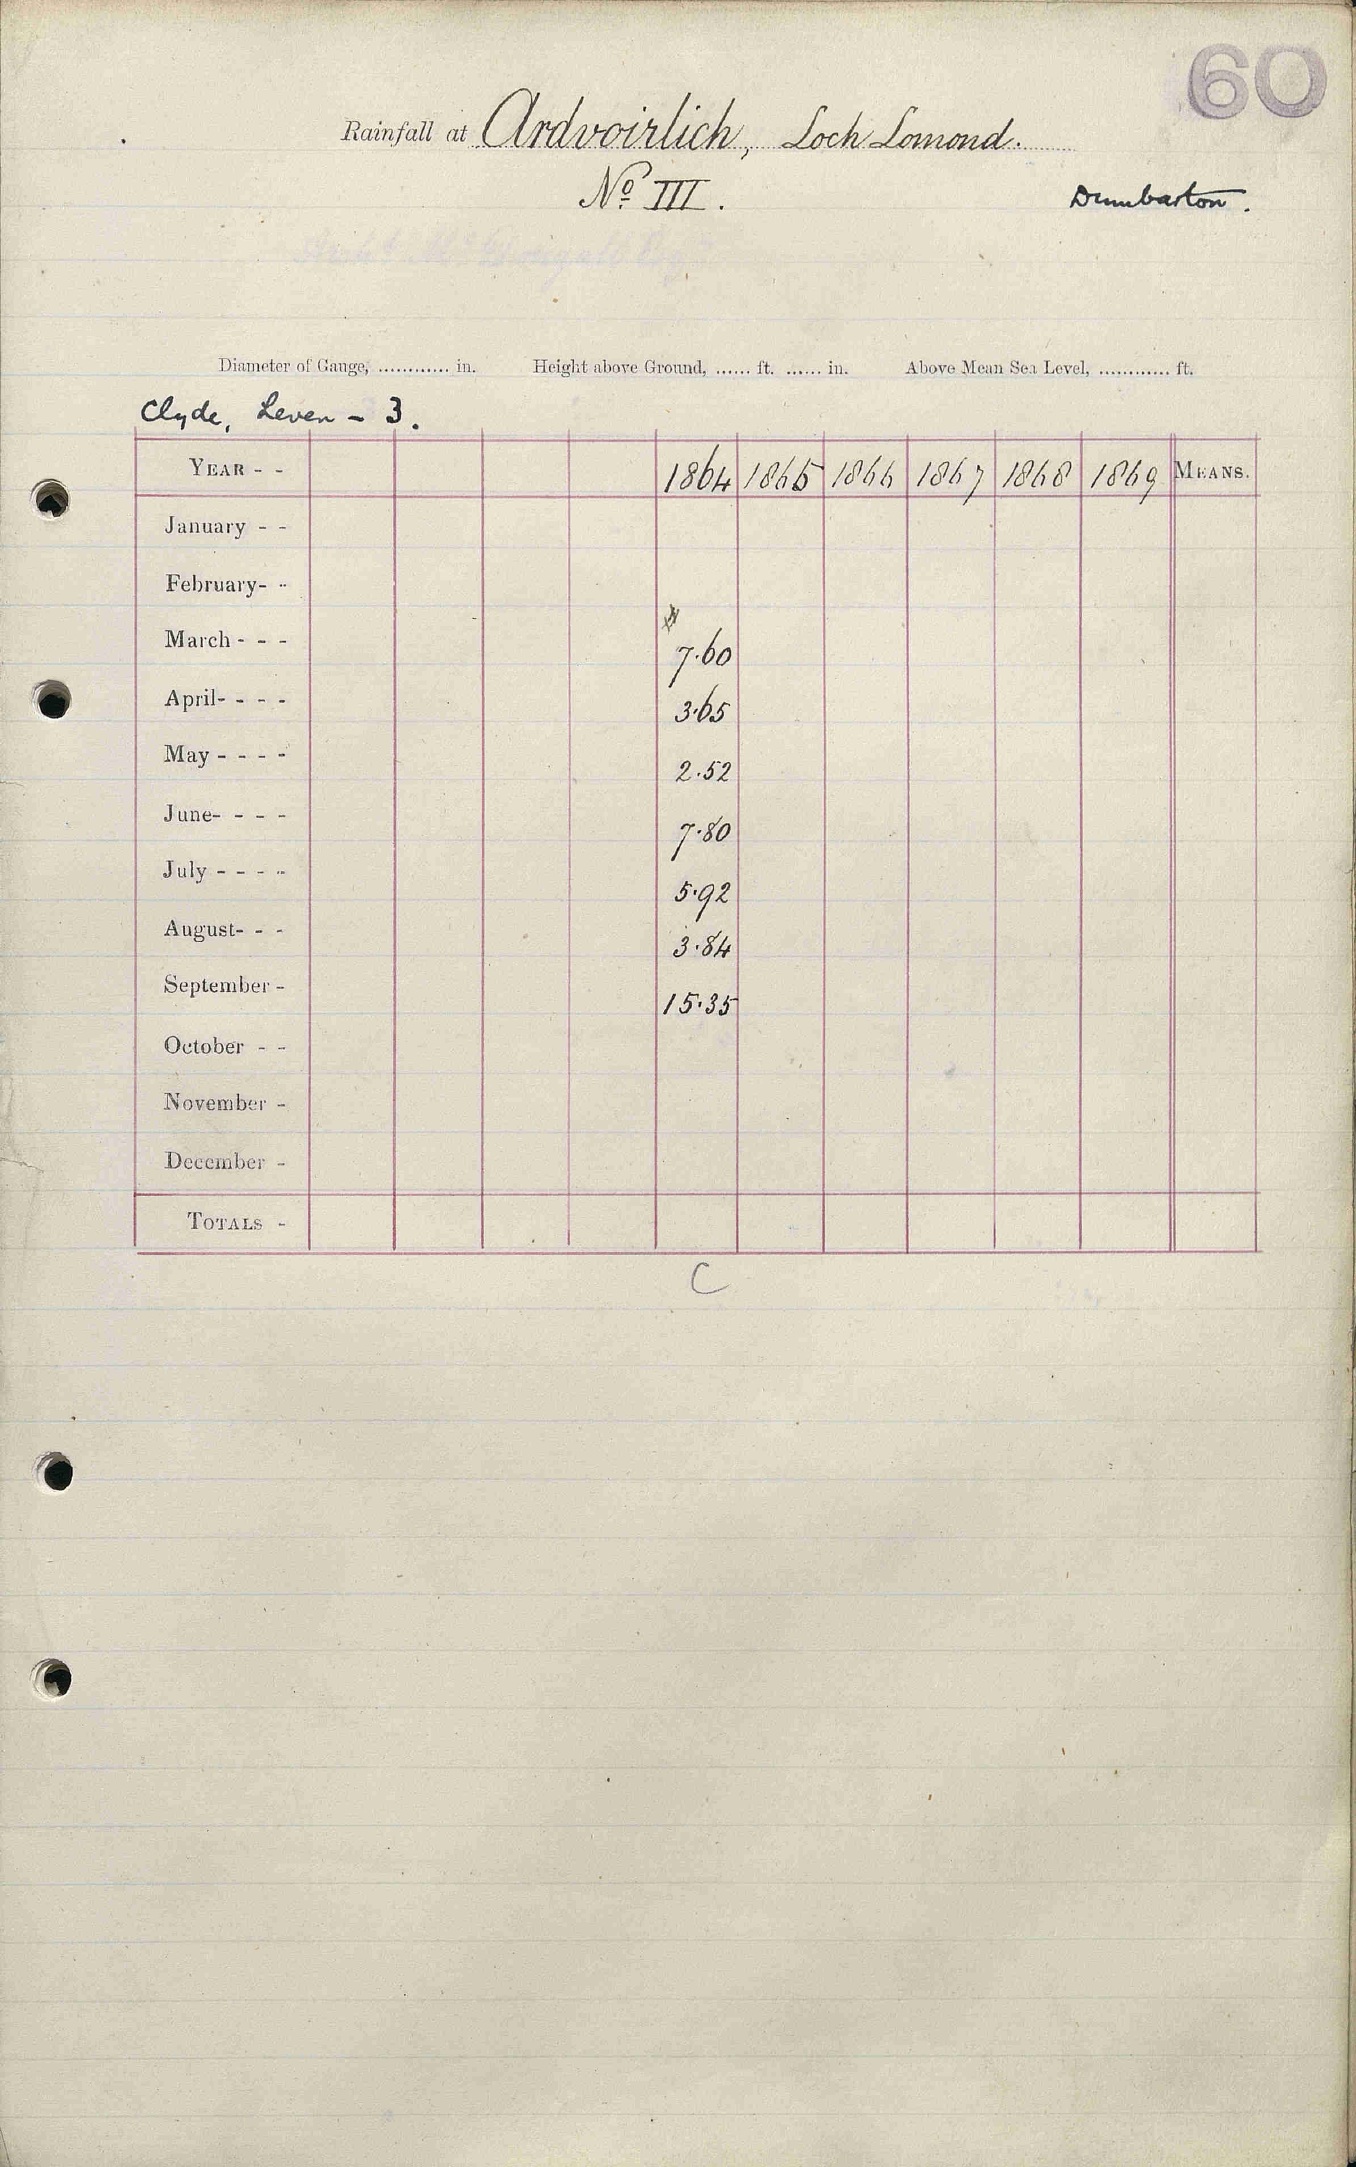 60
Rainfall at Ardvoirlich, Loch Lomond.
No III.
Dumbarton.
Diameter of Gauge, ............ in. Height above Ground, ...... ft. ...... in. Above Mean Sea Level, ............ ft.
Clyde, Leven - 3.
YEAR - - 1864 1865 1866 1867 1868 1869 MEANS.
January - -
February - -
March - - - 7.60
April - - - - 3.65
May - - - - 2.52
June - - - - 7.80
July - - - - 5.92
August - - - 3.84
September - 15.35
October - -
November -
December -
TOTALS -
C